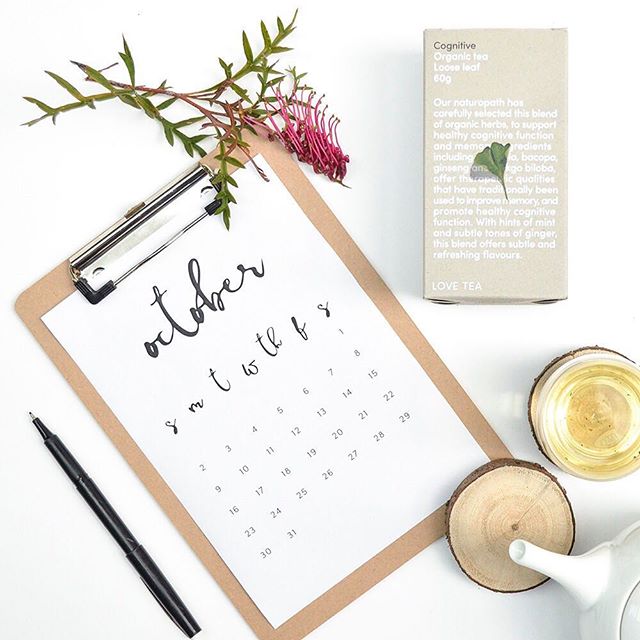 Cognitive
Organic tea
Loose leaf
60g
Our naturopath has
carefully selected this blend
of organic herbs, to support
healthy cognitive function
and memory. Ingredients
including bacopa,
ginseng biloba,
offer therapeutic qualities
that have traditionally been
used to improve memory, and
promote healthy cognitive
function. With hints of mint
and subtle tones of ginger,
this blend offers subtle and
refreshing flavours.
LOVE TEA
october
s m t w th f s
1
2 3 4 5 6 7 8
9 10 11 12 13 14 15
16 17 18 19 20 21 22
23 24 25 26 27 28 29
30 31